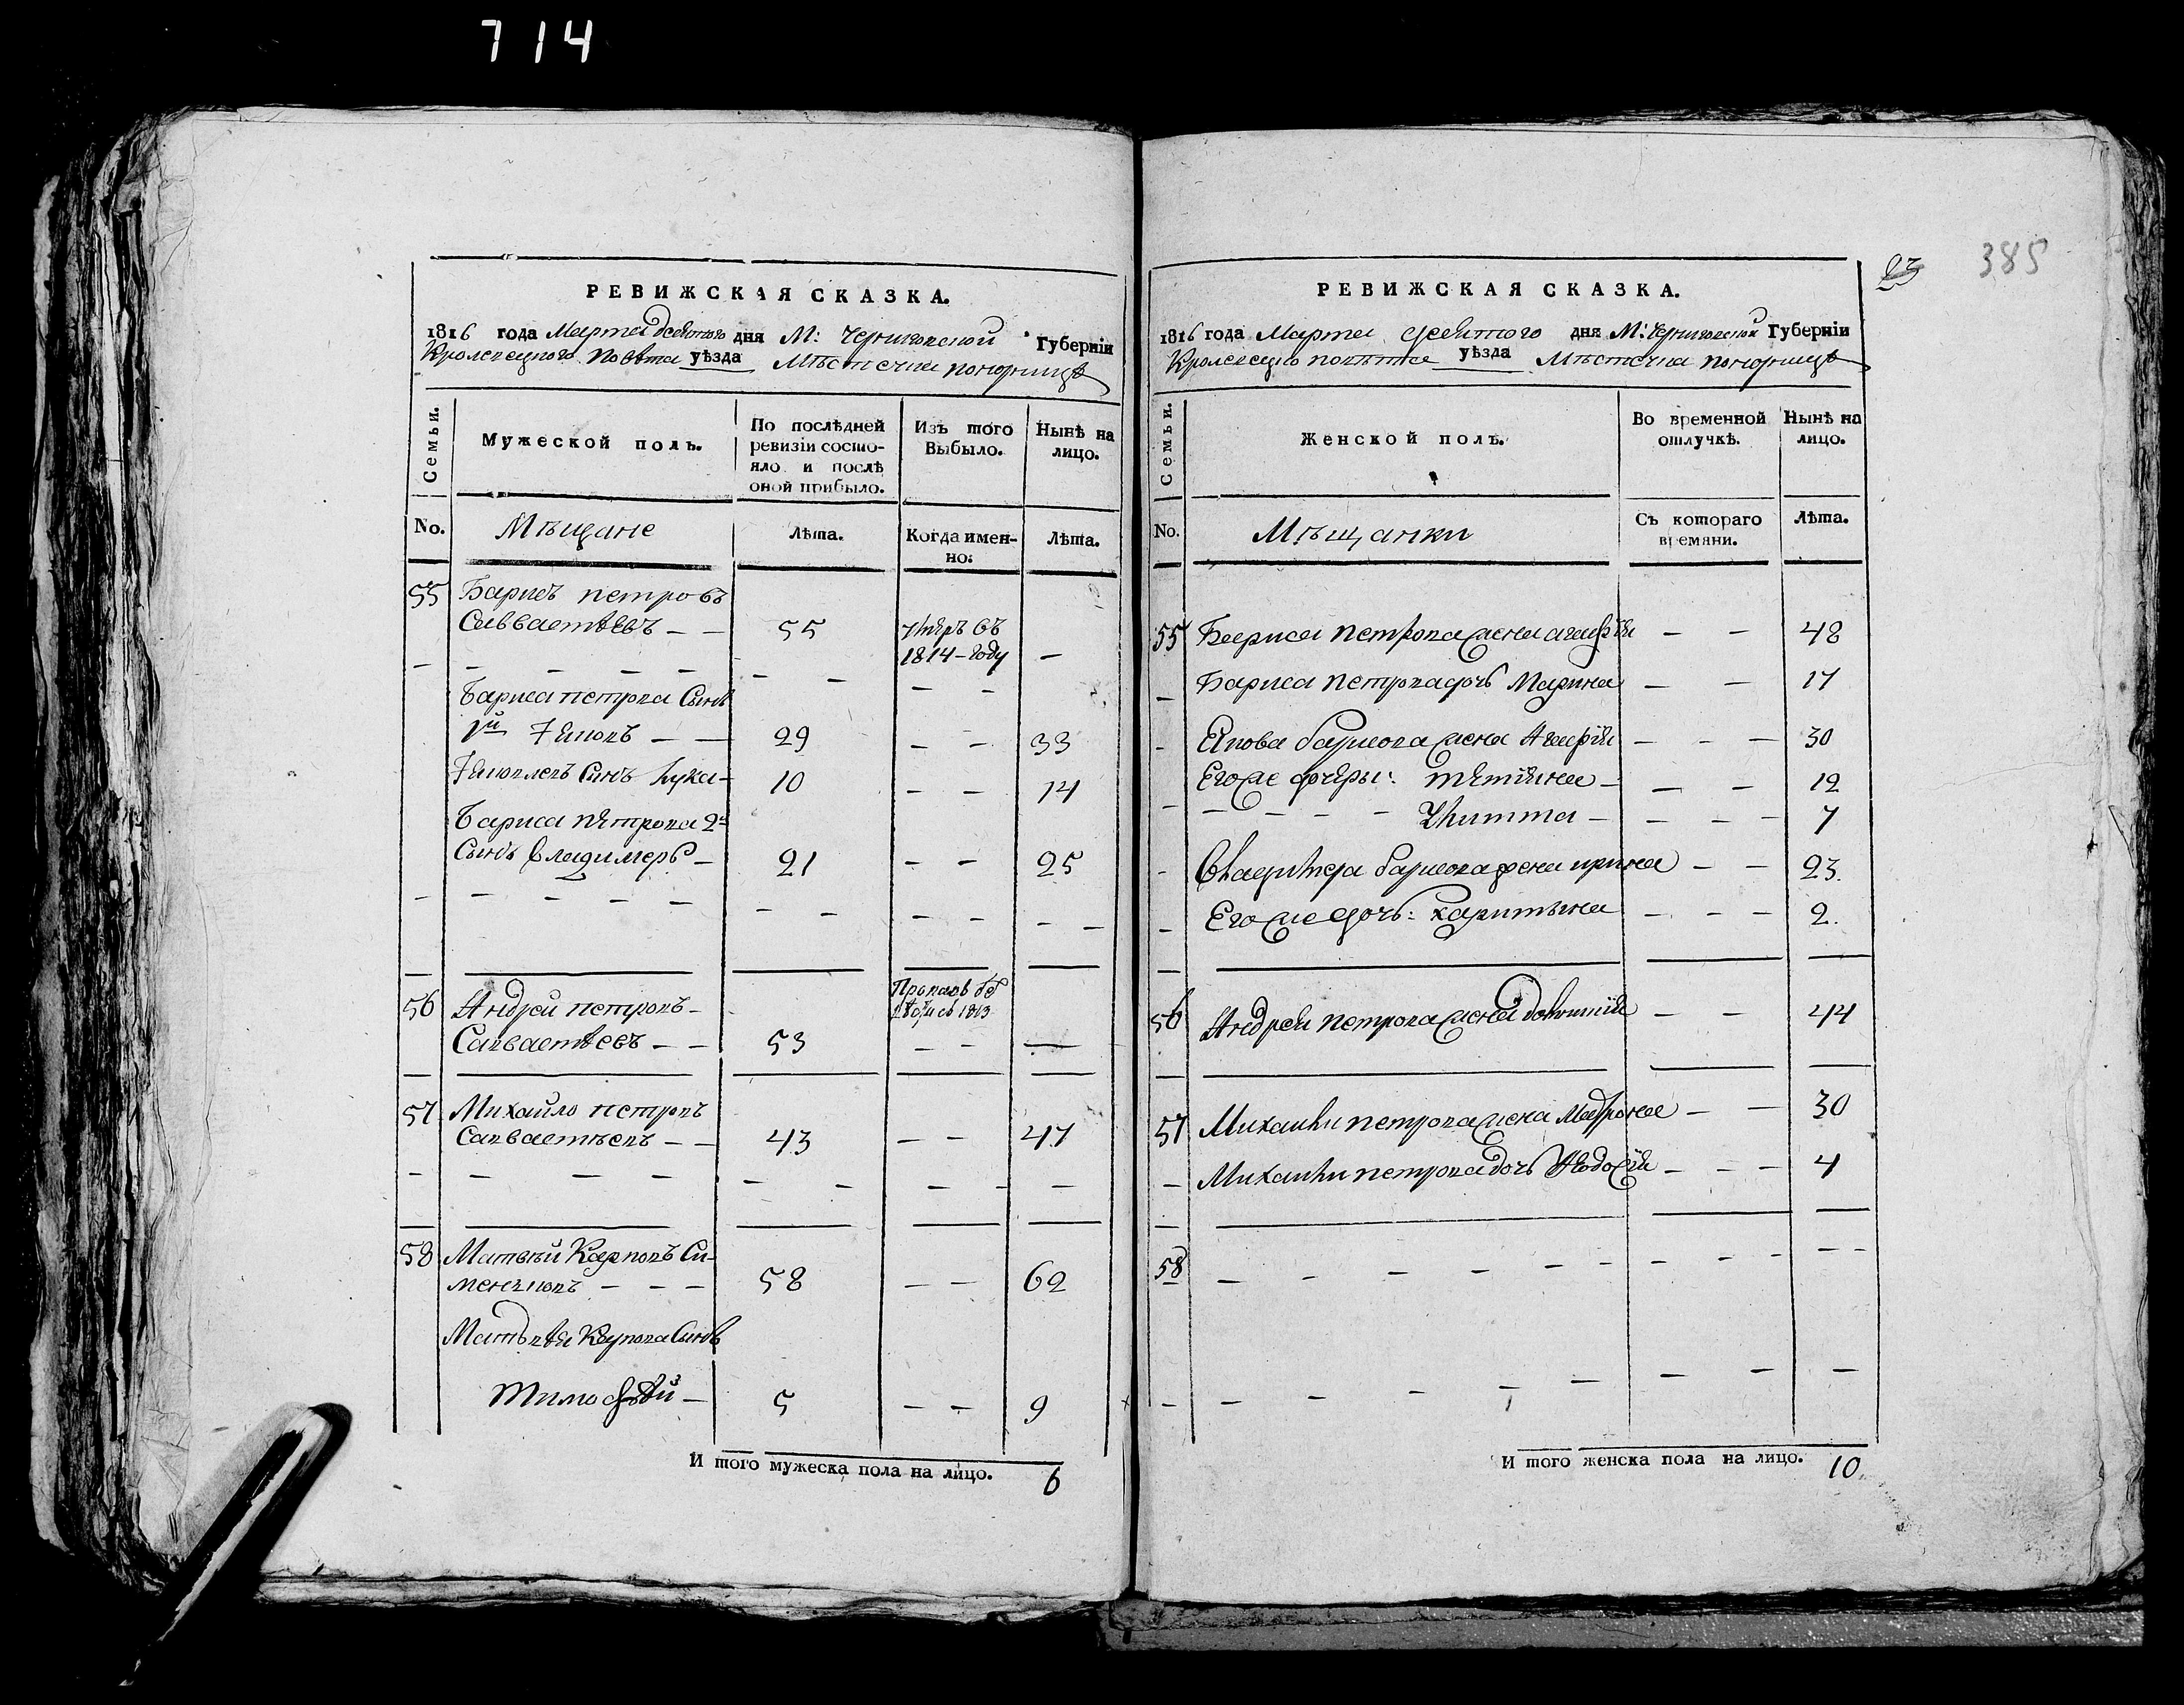 714
РЕВИЖСКАЯ СКАЗКА.
1816 года Марта девятого дня М: Черниговской Губерніи
Кролевецкого Повѣта уѣзда Мѣстечка понорницѣ
Семьи.
Мужеской полъ.
По послѣдней ревизіи состояло и послѣ оной прибыло.
Изъ того Выбыло.
Нынѣ на лицо.
No.
Мѣщане
Лѣта.
Когда именно:
Лѣта.
55 Барисъ петровъ
Савваетѣевъ — — 55 умеръ въ
1814-году —
Бариса петрова Сынъ
1й Яковъ — — 29 — — 33
Яковлевъ Сынъ Лука — 10 — — 14
Бариса петрова 2й
Сынъ Владимеръ — 21 — — 25
56 Андрей петровъ —
Савваетѣевъ — — 53 — — —
57 Михайло петровъ
Савваетѣевъ — — 43 — — 47
58 Матвѣй Карповъ Си-
меняковъ — — — 58 — — 62
Матвѣя Карпова Сынъ
Тимофѣй — 5 — — 9
И того мужеска пола на лицо. 6
23
385
РЕВИЖСКАЯ СКАЗКА.
1816 года Марта девятого дня М: Черниговской Губерніи
Кролевецкого повѣта уѣзда Мѣстечка понорницѣ
Семьи.
Женской полъ.
Во временной отлучкѣ.
Нынѣ на лицо.
No.
Мѣщанки
Съ котораго времяни.
Лѣта.
55 Бариса петрова жена агафія — — 48
Бариса петрова дочь Марина — — 17
Якова барисова жена Агафія — — — 30
Его же дочеры: тетіяна — — — 12
— — — — — — — — 7
Владимера барисова жена ирина — — 23.
Его же дочь: харитына — — — 2.
56 Андрея петрова жена — — 44
57 Михайли петрова жена Матрона — — 30
Михайли петрова дочь Ѳеодосія — — — 4
58
И того женска пола на лицо. 10